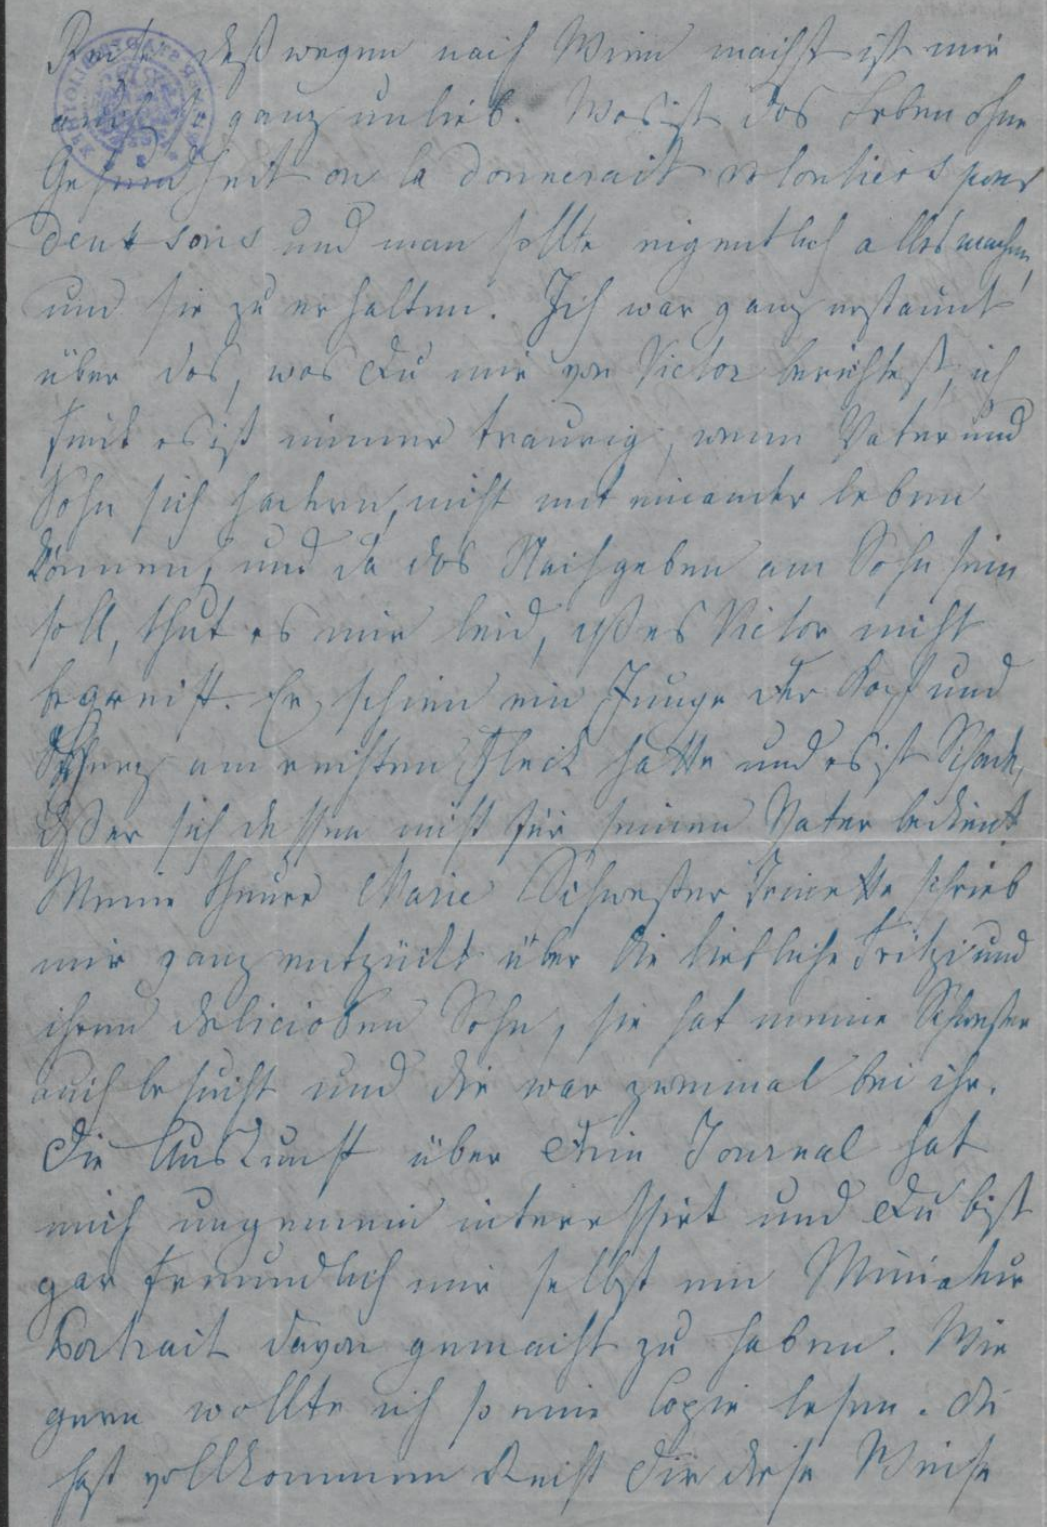 Reise deßwegen nach Wien machst ist mir
auch so ganz unlieb. Was ist das Leben ohne
Gesundheit on la donnerait volontiers pour
deux sous und man sollte eigentlich alles machen,
um sie zu erhalten. Ich war ganz erstaunt
über das, was Du mir von Victor berichtest, ich
find es ist immer traurig, wenn Vater und
Sohn sich hadern, nicht mit einander leben
können, und da das Nachgeben am Sohn sein
soll, thut es mir leid, daß es Victor nicht
begreift. Er schien ein Junge der Kopf und
Herz am rechten Fleck hatte und es ist Schade,
daß er sich dessen nicht für seinen Vater bedient
Meine theure Marie Schwester schrieb
mir ganz entzückt über die liebliche Fritzi und
ihren deliciosen Sohn, sie hat meine Schwester
auch besucht und die war zweimal bei ihr.
Die Auskunft über Dein Journal hat
mich ungemein interessirt und Du bist
gar freundlich mir selbst ein Miniatur
Portrait davon gemacht zu haben. Wie
gern wollte ich so eine Copie lesen. Du
hast vollkommen Recht Dir diese Weise